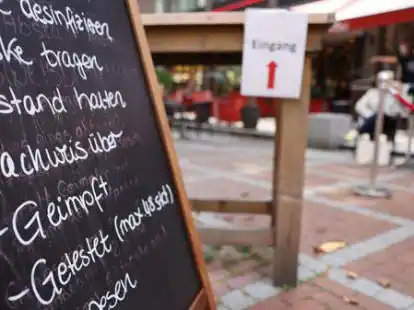 desinfizieren
ke tragen
stand halten
achweis über
- Geimpft
- Getestet (max 48 std)
esen
Eingang